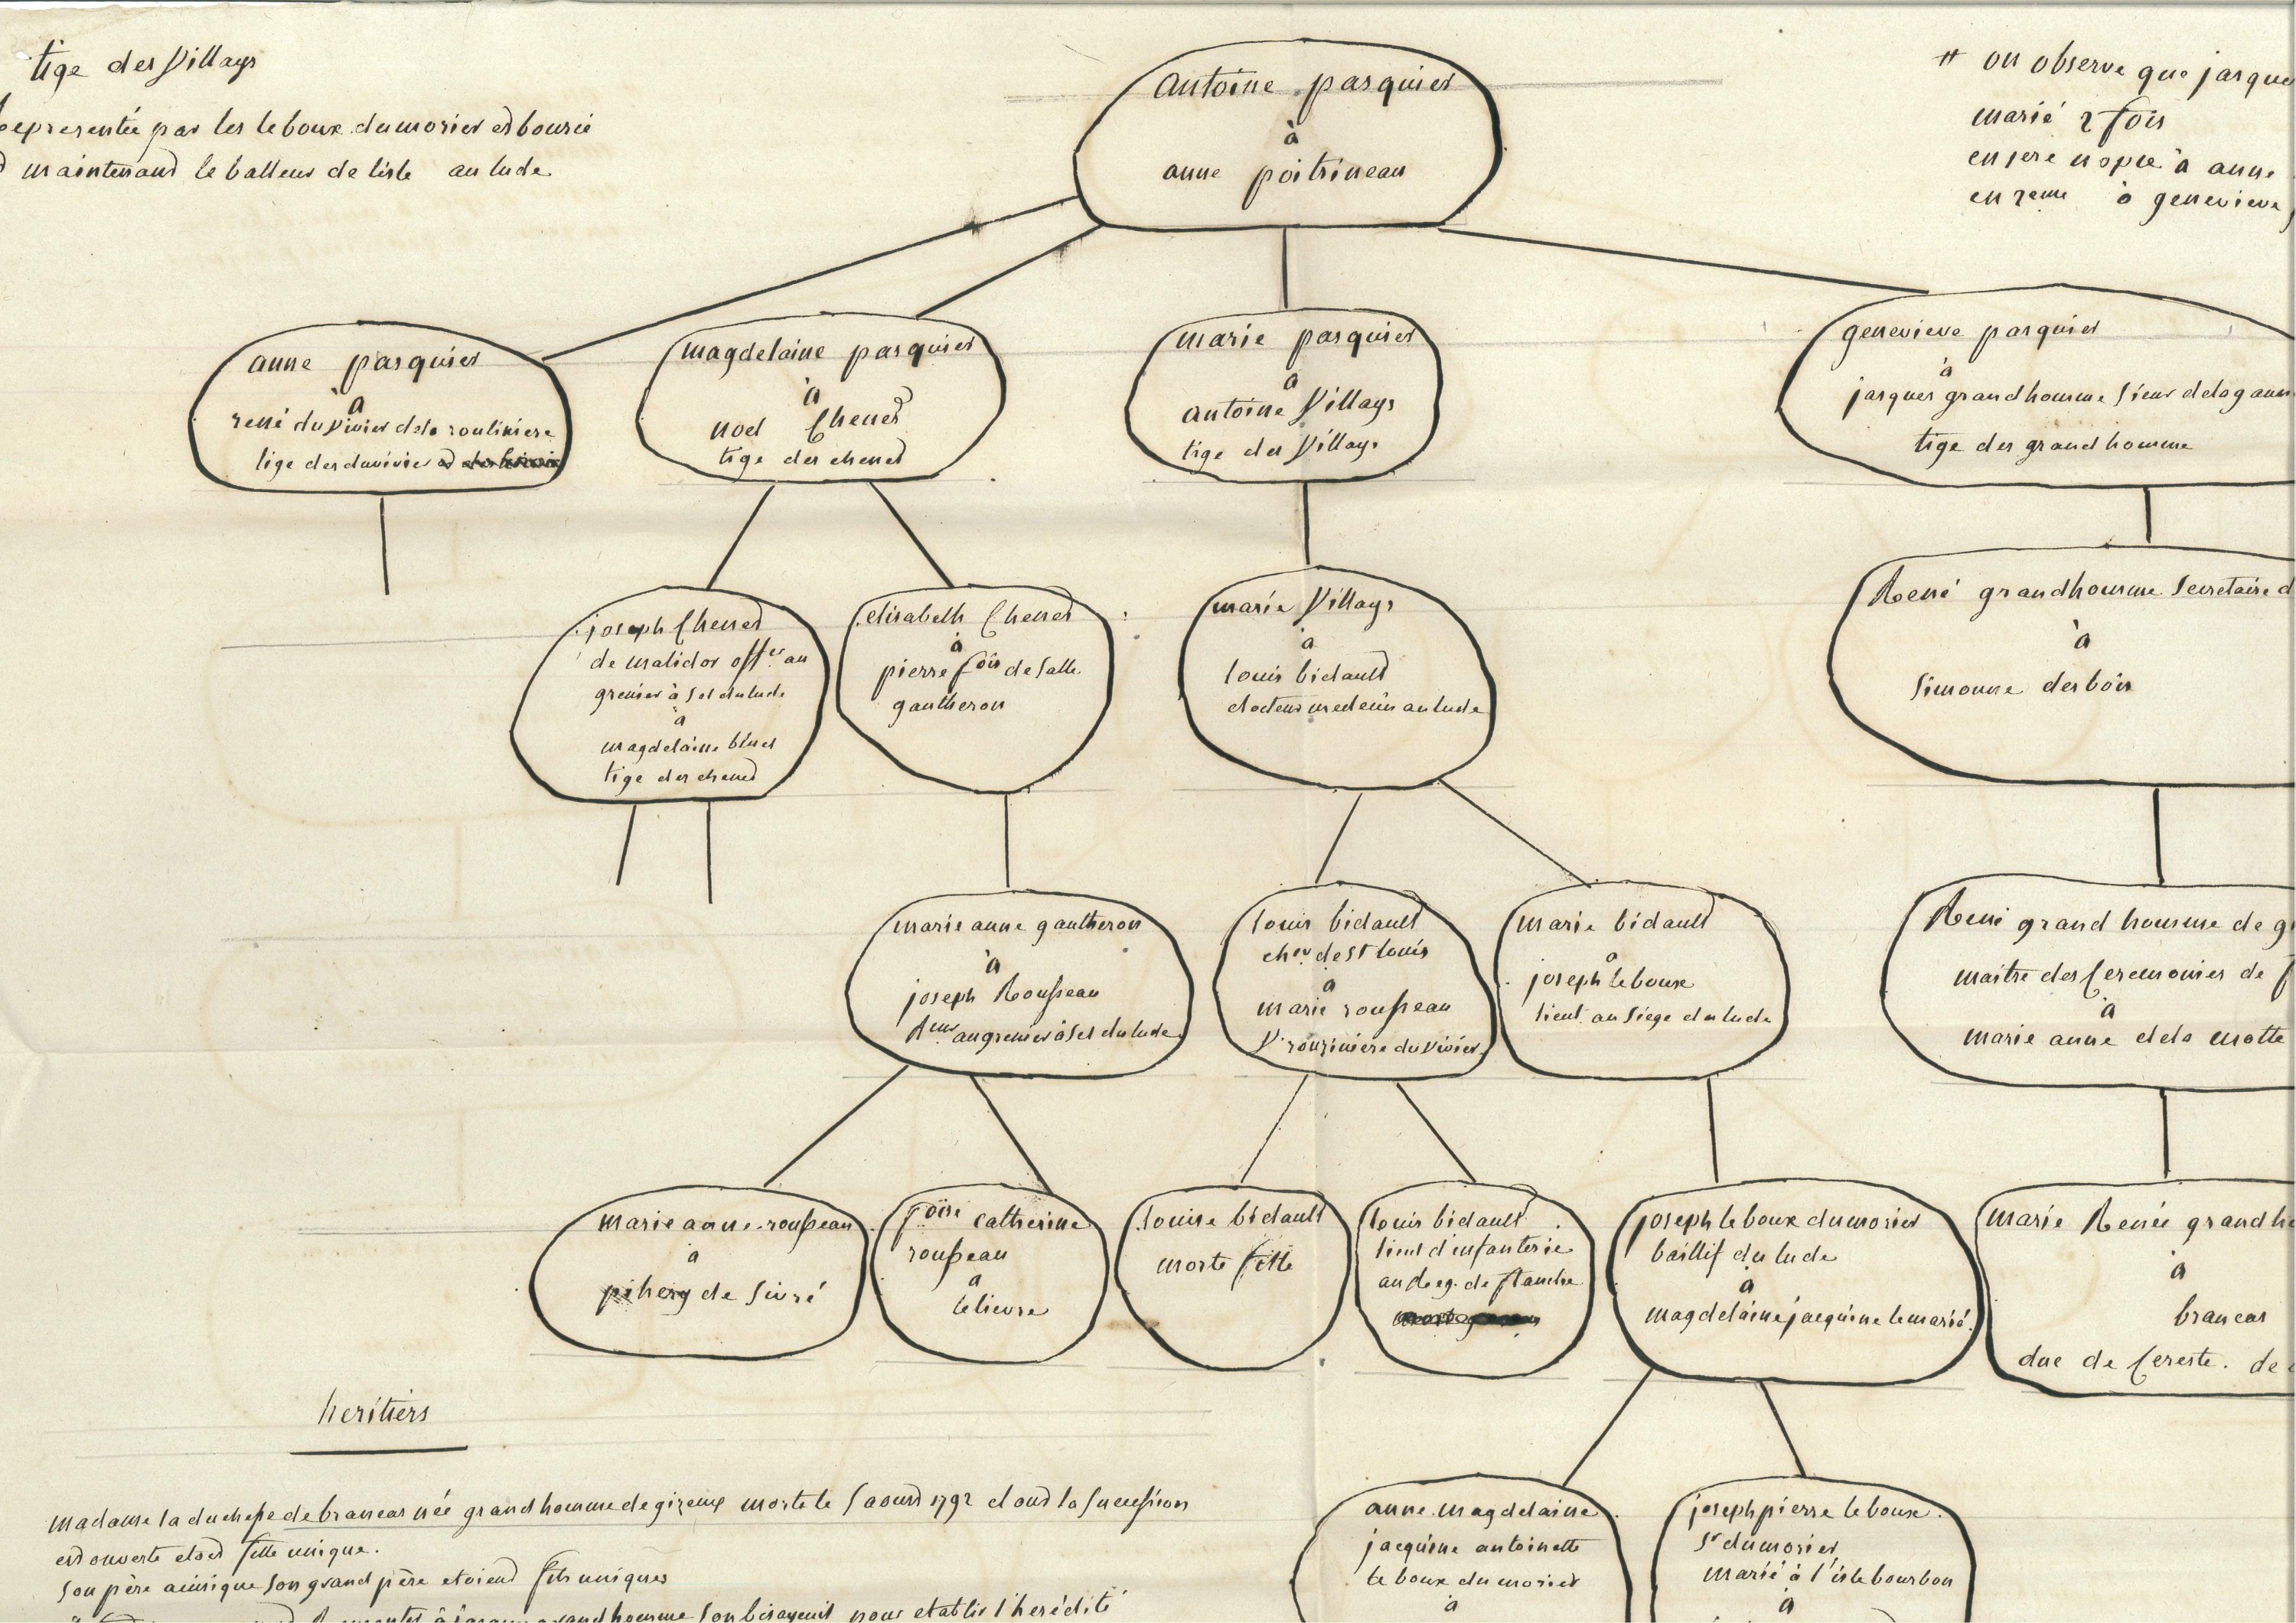 tige des Villays
Representée par les leboux dumorier et bourié
et maintenant le balleur de lisle au lude
# on observe que jacques
marié 2 fois
en 1ere nopce à anne
en 2eme à genevieve
antoine pasquier
à
anne poitrineau
anne pasquier
à
rené du Vivier dela rouliniere
tige des duvivier
magdelaine pasquier
à
noel Chenet
tige des chenet
marie pasquier
à
antoine Villays
tige des Villays
genevieve pasquier
à
jacques grandhomme Sieur dela
tige des grand homme
joseph Chenet
de malidor offer au
grenier à Sel du lude
à
magdelaine binet
tige des chenet
elisabeth Chenet
à
pierre fois de Salle
gautheron
marie Villays
à
louis bidault
docteur medecin au lude
René grandhomme Secretaire d
à
Simonne desbois
marie anne gautheron
à
joseph Rousseau
au grenier à Sel du lude
louis bidault
cher de st louis
à
marie rousseau
Vr rouziniere du Vivier
marie bidault
à
joseph leboux
lieut. au Siege du lude
René grand homme de gi
maitre des Ceremonies de f
à
marie anne dela motte
marie anne rousseau
à
pihery de Sivré
foise catherine
rousseau
à
lelievre
louise bidault
morte fille
louis bidault
lieut d'infanterie
au Reg. de flandre
joseph leboux dumorier
baillif du lude
à
magdelaine jacquine lemarié
marie Renée grandho
à
brancas
duc de Cereste. de
heritiers
madame la duchesse de brancas née grandhomme de gizeux morte le 1 aoust 1792 dont la Succession
est ouverte etoit fille unique.
Son père ainsi que Son grand père etoient fils uniques
Remonter à jacques grandhomme Son bisayeuil pour etablir l'heredité
anne magdelaine
jacquine antoinette
leboux dumorier
à
joseph pierre leboux
Sr dumorier
marié à l'isle bourbon
à